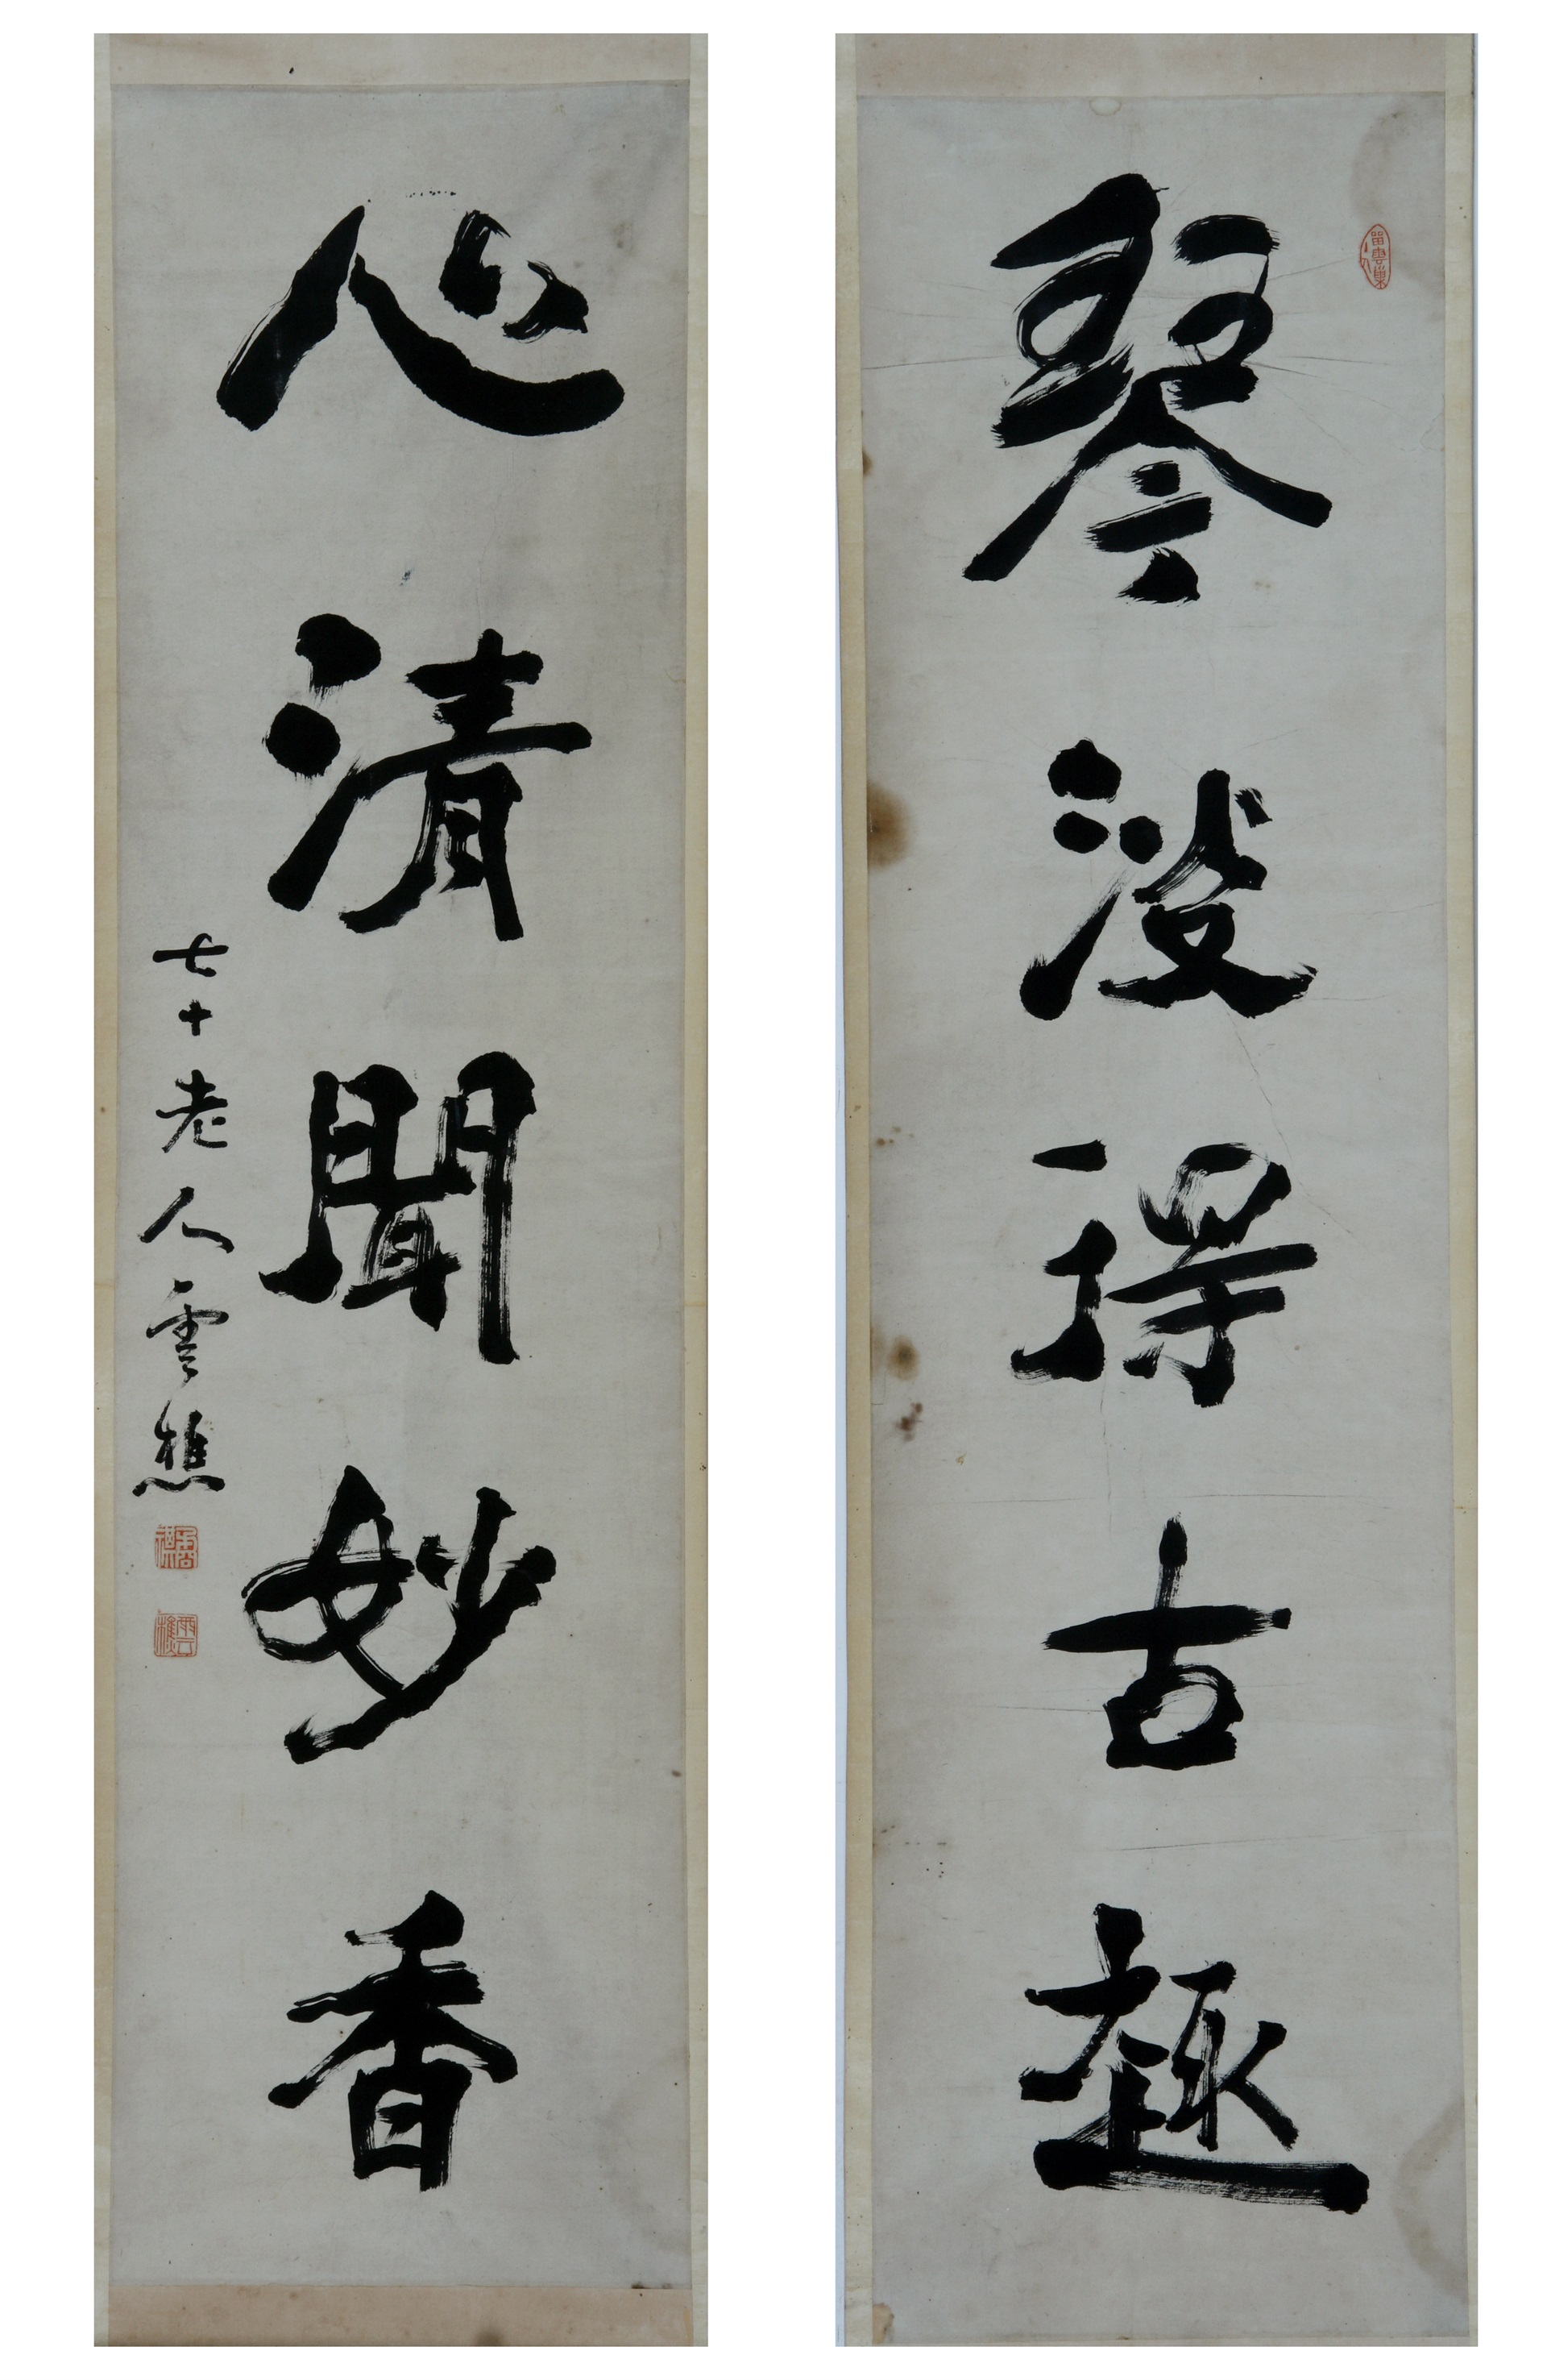 琴澹得古趣
心清聞妙香
七十老人雲樵